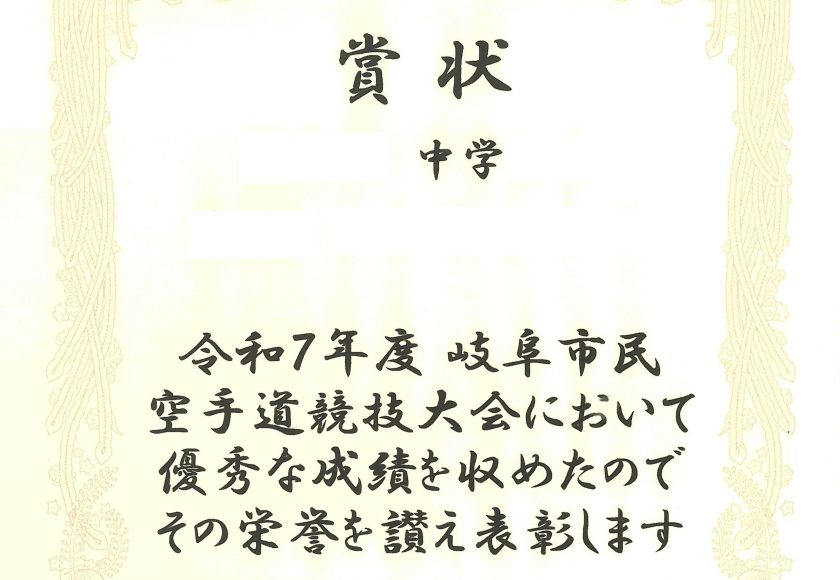 賞状
中学
令和7年度 岐阜市民
空手道競技大会において
優秀な成績を収めたので
その栄誉を讃え表彰します